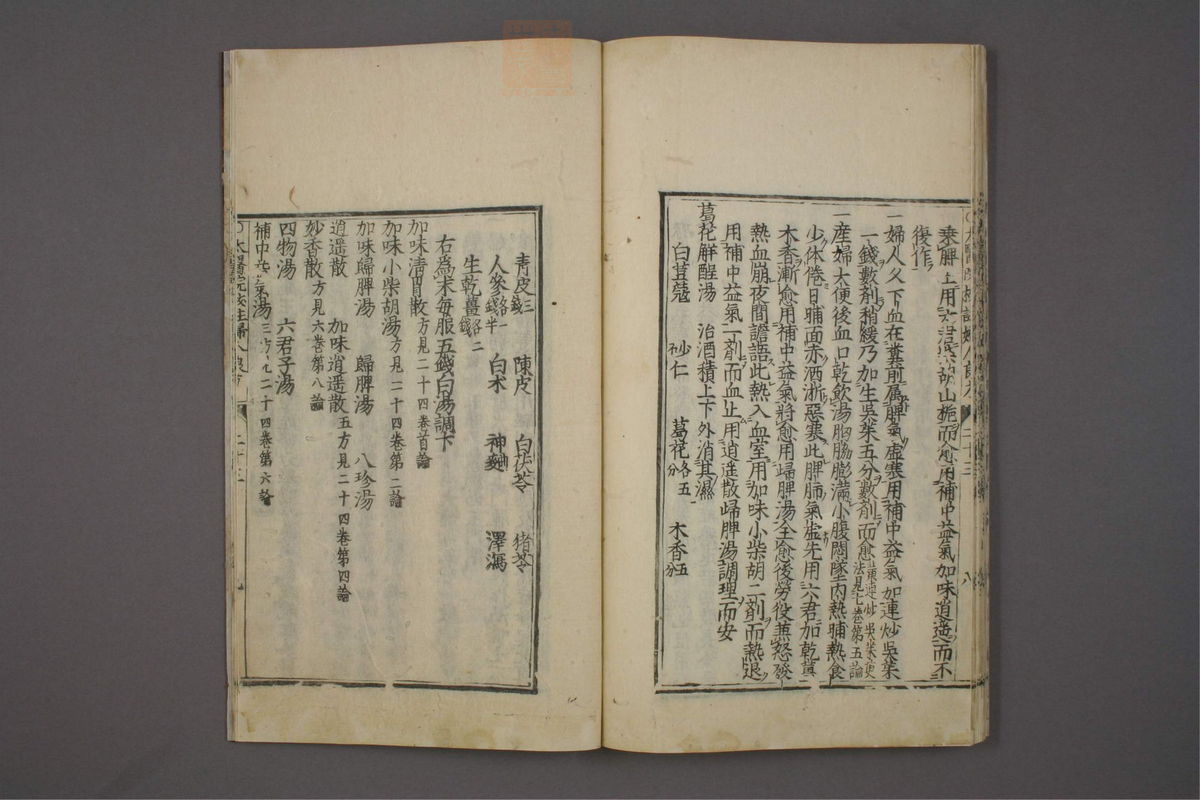 乘脾土用六君柴胡山梔而愈用補中益氣加味逍遥而不
復作
一婦人久下血在糞前属脾氣虚寒用補中益氣加連炒吳茱
一錢數剤稍緩乃加生吳茱五分數剤而愈黄連炒吳茱萸法見七卷第五論
一産婦大便後血口乾飲湯胸脇膨滿小腹閼墜内熱晡熱食
少体倦日晡面赤洒淅惡寒此脾肺氣虚先用六君加乾薑
木香漸愈用補中益氣將愈用歸脾湯全愈後勞役兼怒發
熱血崩夜間譫語此熱入血室用加味小柴胡二剤而熱退
用補中益氣二剤而血止用逍遥散歸脾湯調理而安
葛花解酲湯 治酒積上下外消其濕
白荳蔲 砂仁 葛花各五分 木香五分
青皮三錢 陳皮 白茯苓 猪苓
人參各一錢半 白术 神麹 澤瀉
生乾薑各二錢
右爲末每服五錢白湯調下
加味清胃散方見二十四卷首論
加味小柴胡湯方見二十四卷第二論
加味歸脾湯 歸脾湯 八珍湯
逍遥散 加味逍遥散五方見二十四卷第四論
妙香散方見六卷第八論
四物湯 六君子湯
補中益氣湯三方見二十四卷第六論